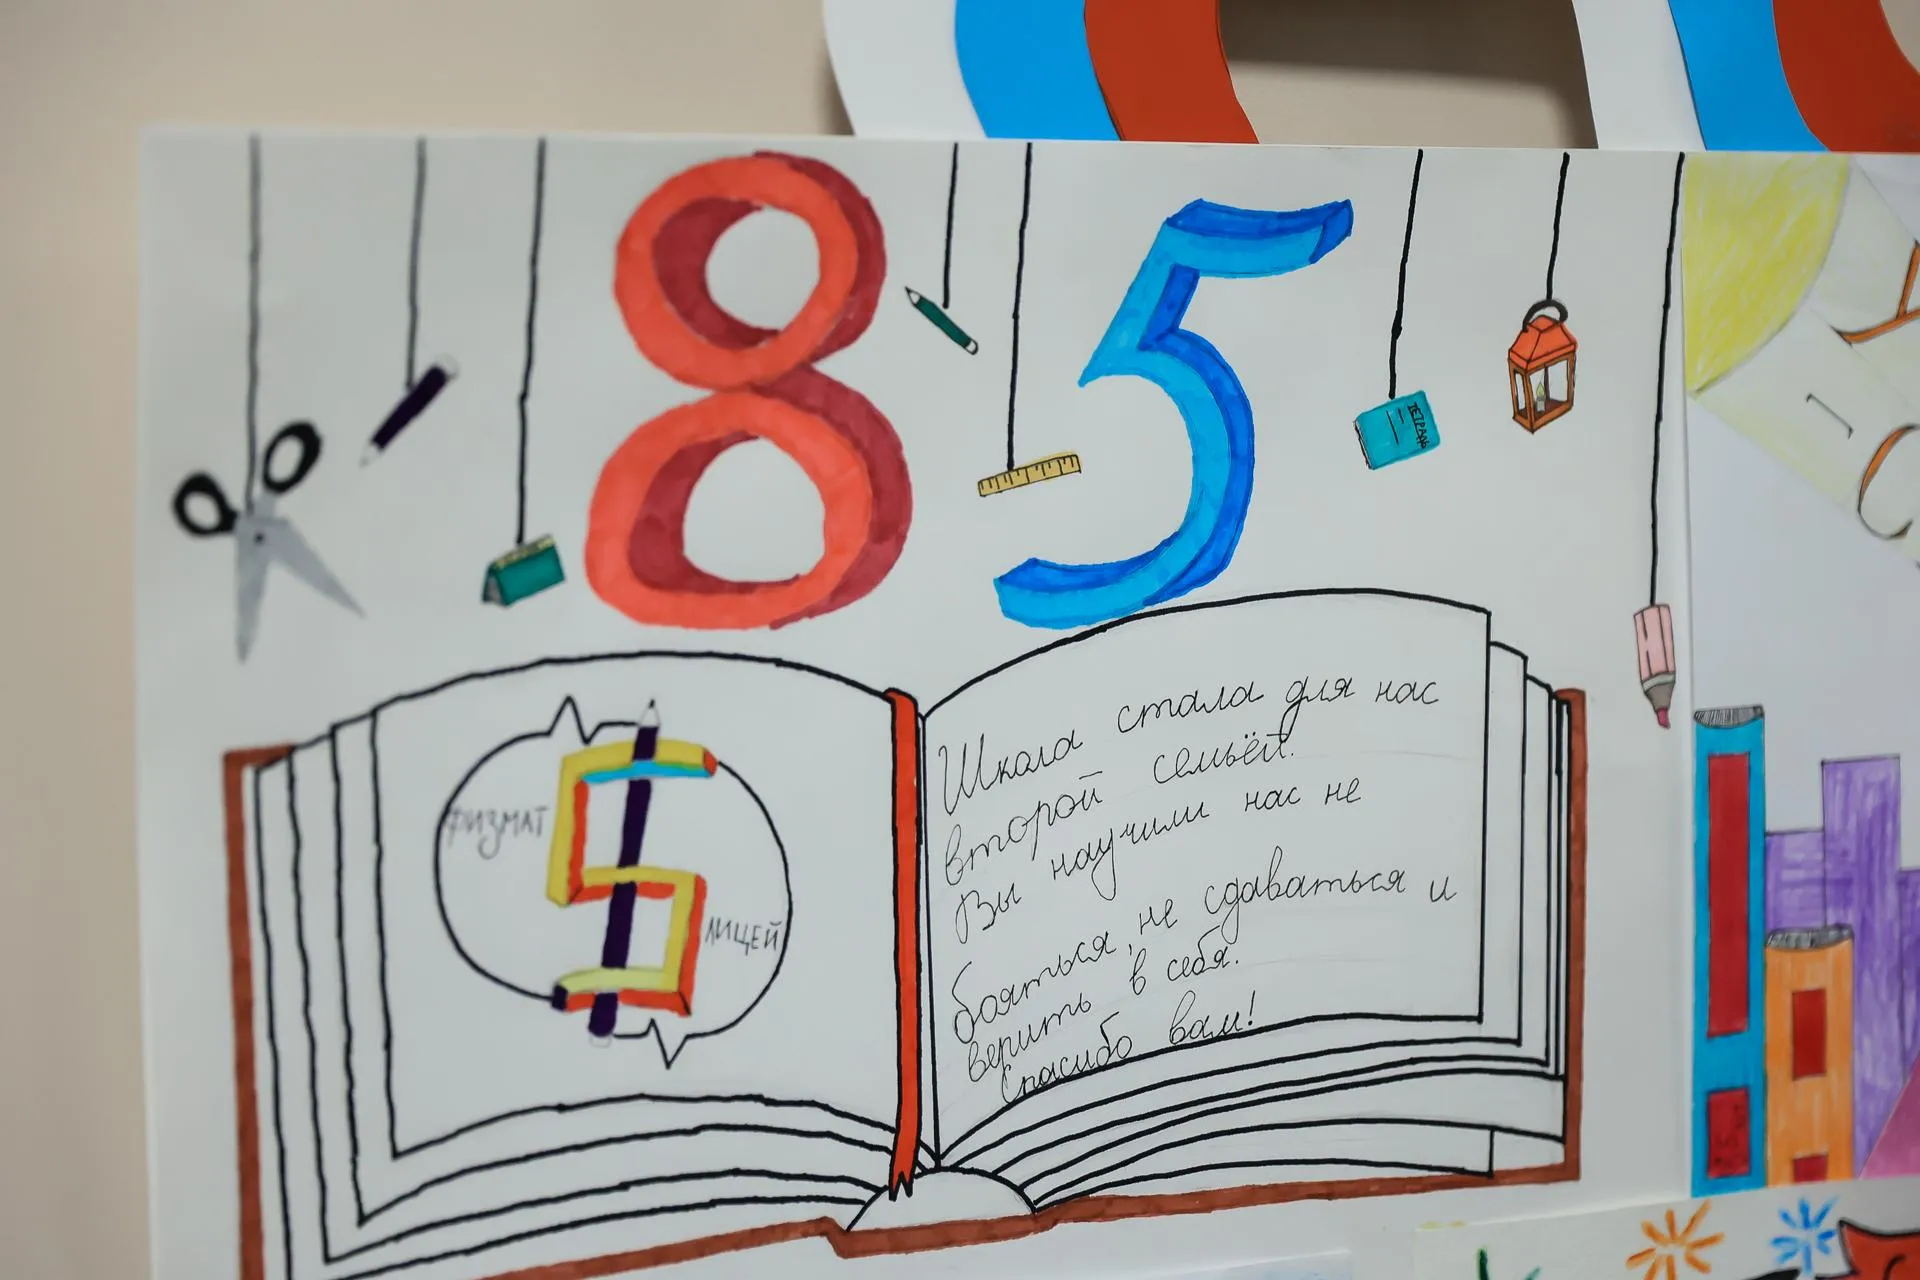 85
ТЕТРАДЬ
ФИЗМАТ
5
ЛИЦЕЙ
Школа стала для нас
второй семьёй.
Вы научили нас не
бояться, не сдаваться и
верить в себя.
Спасибо вам!